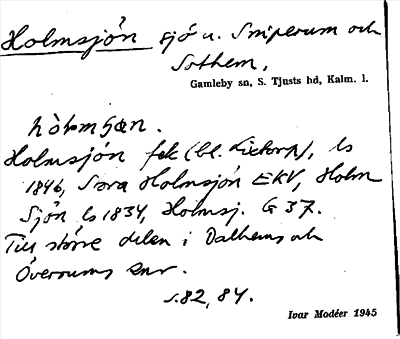 Holmsjön sjö u. Sniperum och
Sothem,
Gamleby sn, S. Tjusts hd, Kalm. l.
Holmsjön fek (bl. Lietorp), ls
1846, Stora Holmsjön EKV, Holm
Sjön ls 1834, Holmsj. G 37.
Till större delen i Dalhems och
Överums snr.
s. 82, 84.
Ivar Modéer 1945